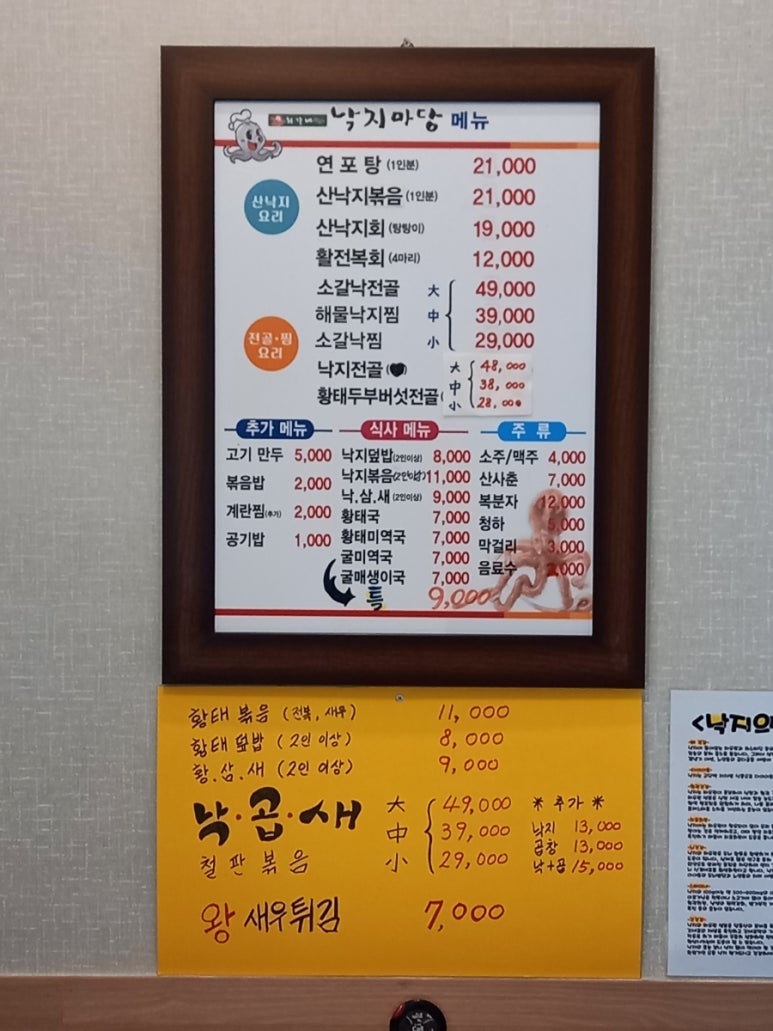 낙지마당 메뉴
산낙지
요리
연포탕 (1인분) 21,000
산낙지볶음 (1인분) 21,000
산낙지회 (탕탕이) 19,000
활전복회 (4마리) 12,000
전골·찜
요리
소갈낙전골 大 49,000
해물낙지찜 中 39,000
소갈낙찜 小 29,000
낙지전골 大 48,000
황태두부버섯전골 中 38,000
小 28,000
추가 메뉴
고기 만두 5,000
볶음밥 2,000
계란찜(추가) 2,000
공기밥 1,000
식사 메뉴
낙지덮밥(2인이상) 8,000
낙지볶음(2인이상) 11,000
낙.삼.새 (2인이상) 9,000
황태국 7,000
황태미역국 7,000
굴미역국 7,000
굴매생이국 7,000
특 9,000
주 류
소주/맥주 4,000
산사춘 7,000
복분자 12,000
청하 5,000
막걸리 3,000
음료수 2,000
황태 볶음 (전복, 새우) 11,000
황태 덮밥 (2인 이상) 8,000
황.삼.새 (2인 이상) 9,000
낙·곱·새
철판볶음
大 49,000
中 39,000
小 29,000
* 추가 *
낙지 13,000
곱창 13,000
낙+곱 15,000
왕 새우튀김 7,000
<낙지의